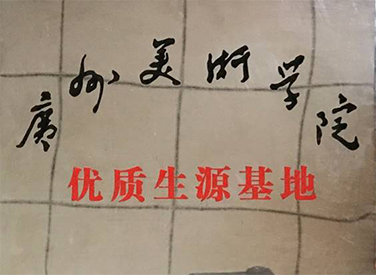 广州美术学院
优质生源基地